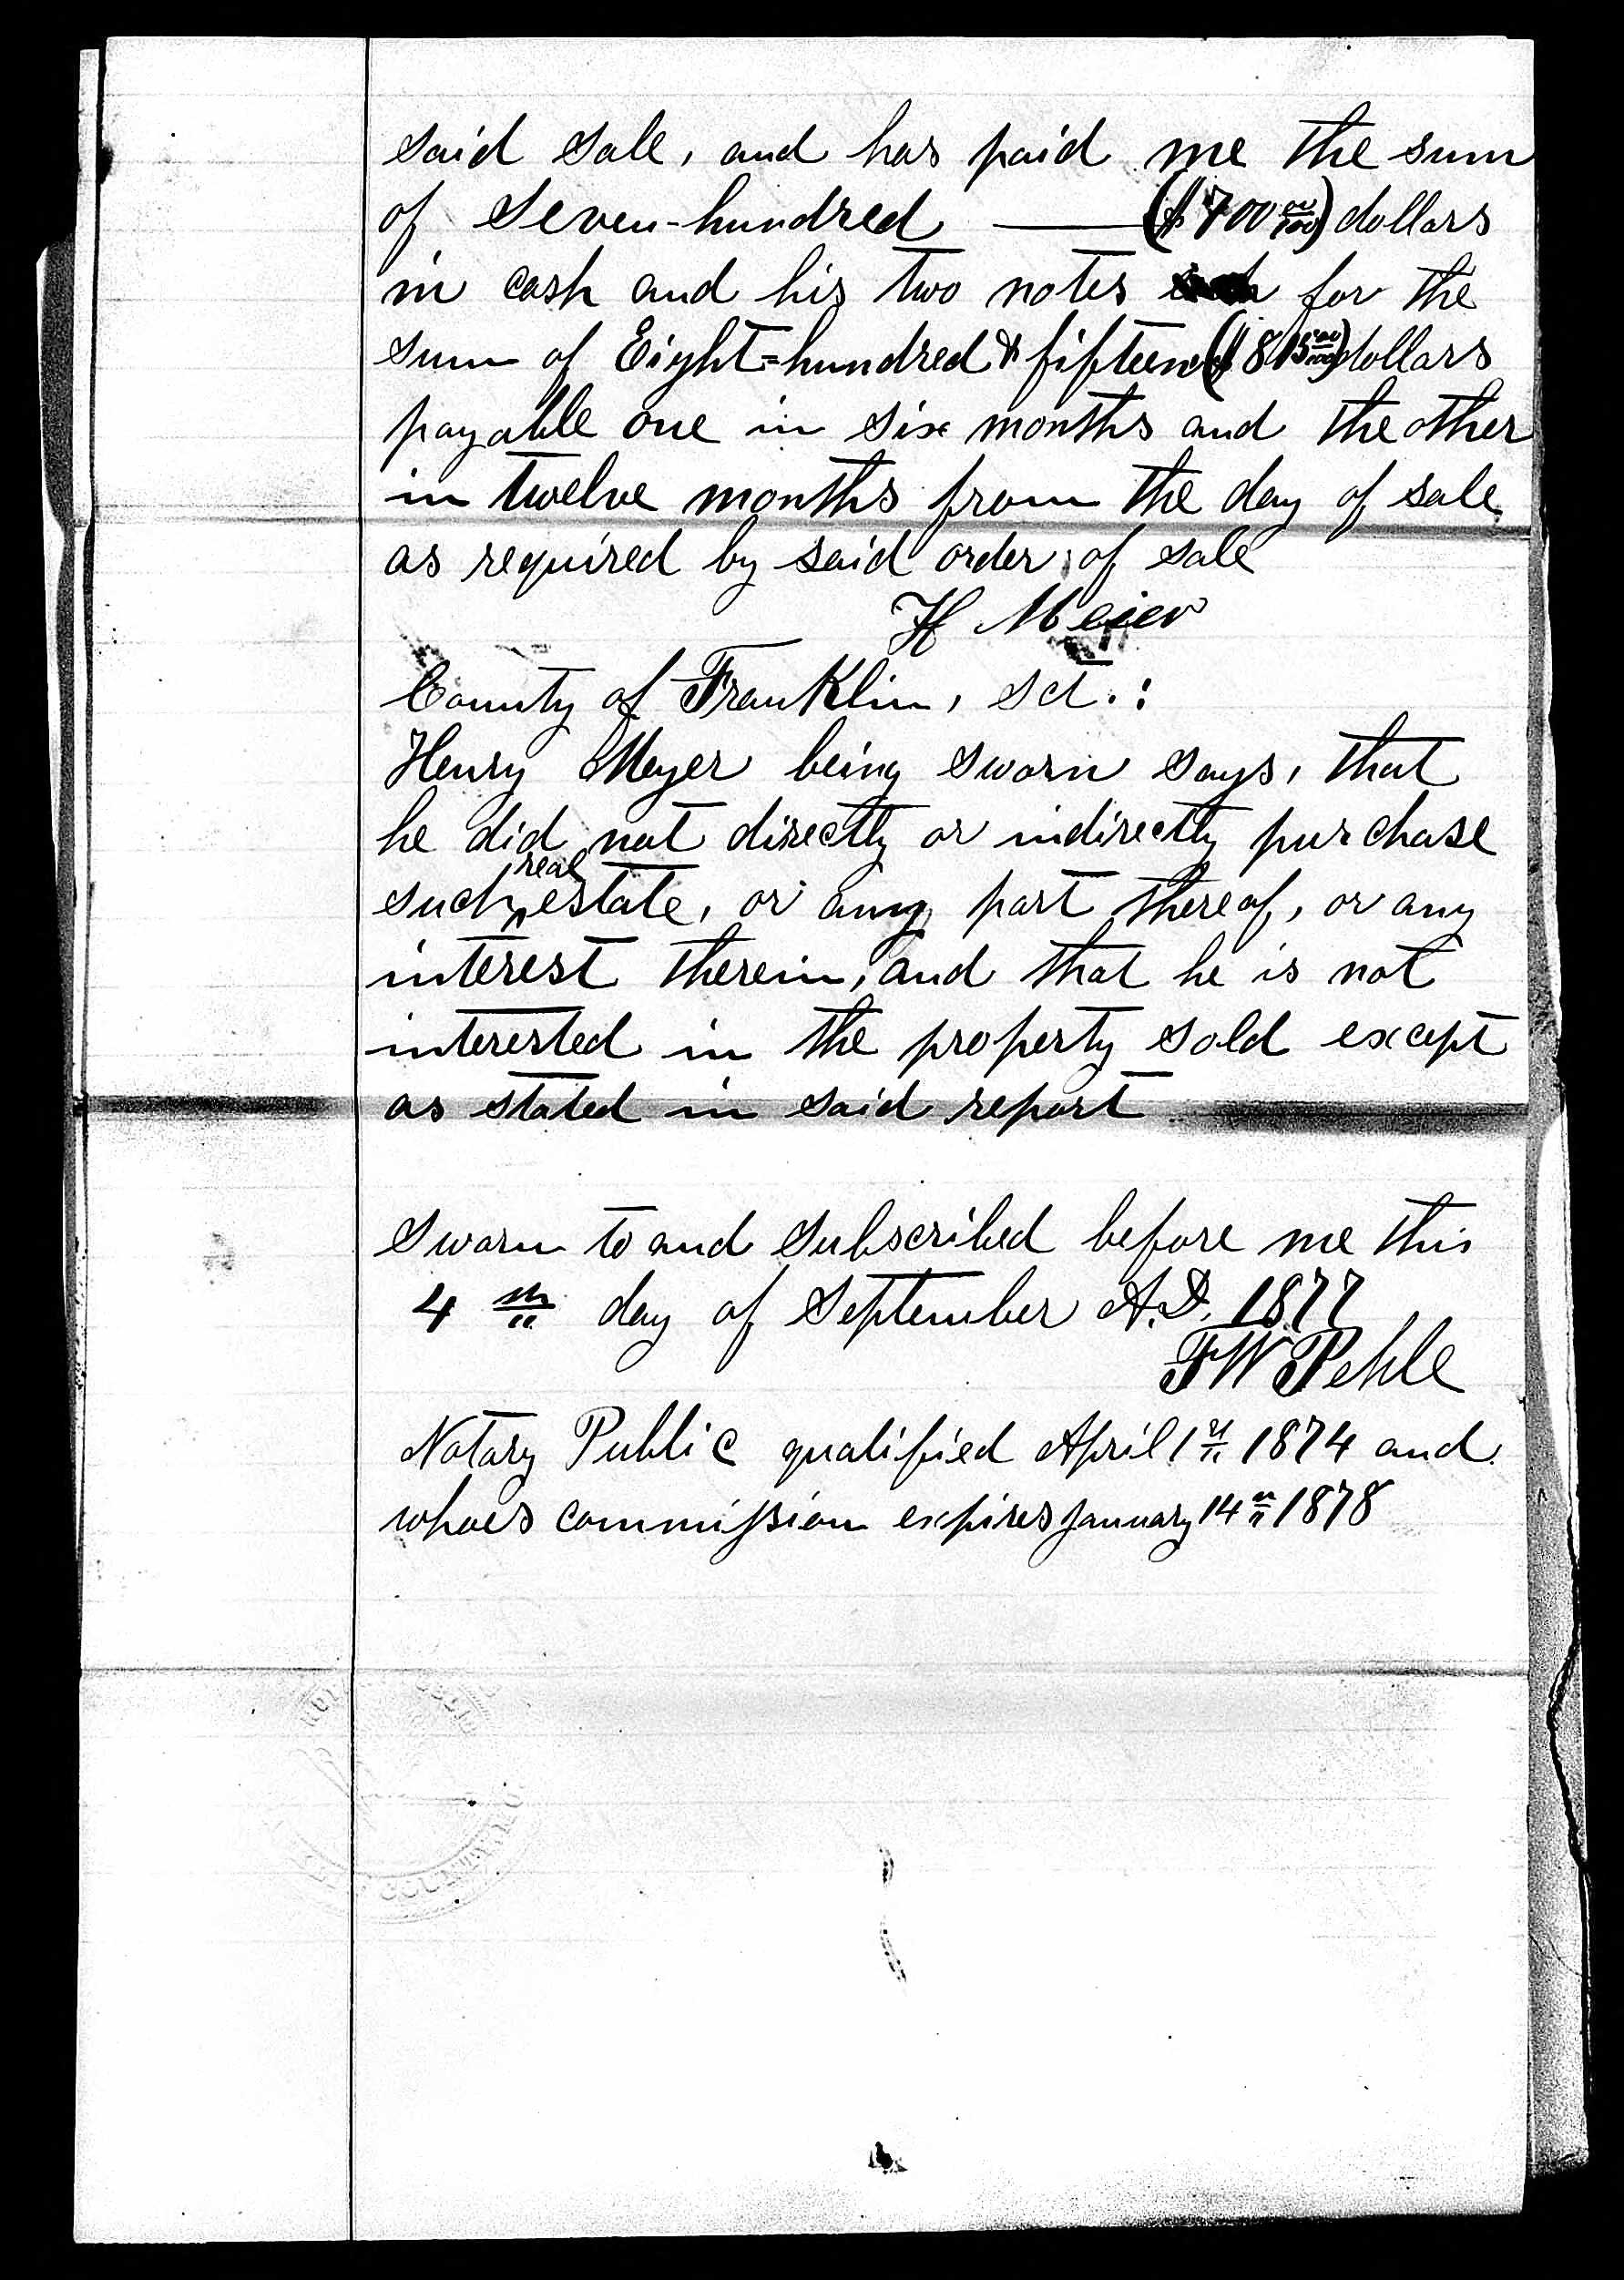 said sale, and has paid me the sum
of Seven-hundred ——— ($700 00/100) dollars
in cash and his two notes for the
sum of Eight=hundred & fifteen ($815 00/100) dollars
payable one in six months and the other
in twelve months from the day of sale
as required by said order of sale
H Meier
County of Franklin, sct.:
Henry Meyer being sworn says, that
he did not directly or indirectly purchase
such real estate, or any part thereof, or any
interest therein, and that he is not
interested in the property sold except
as stated in said report
Sworn to and subscribed before me this
4th day of September A.D. 1877
FW Pehle
Notary Public qualified April 1st 1874 and
whoes commission expires January 14th 1878
COUNTY